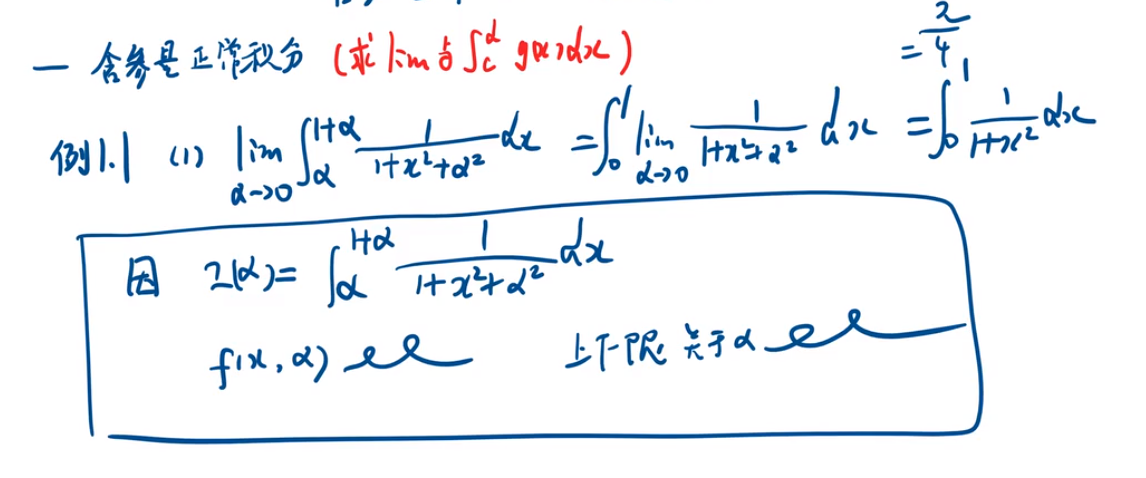 一 含参是正常积分 (求 lim 与 ∫_c^d g(x)dx)
例1.1 (1) lim_{α→0} ∫_α^{1+α} 1/(1+x²+α²) dx = ∫_0^1 lim_{α→0} 1/(1+x²+α²) dx = ∫_0^1 1/(1+x²) dx
= π/4
因 I(α) = ∫_α^{1+α} 1/(1+x²+α²) dx
f(x, α) 上下限关于α